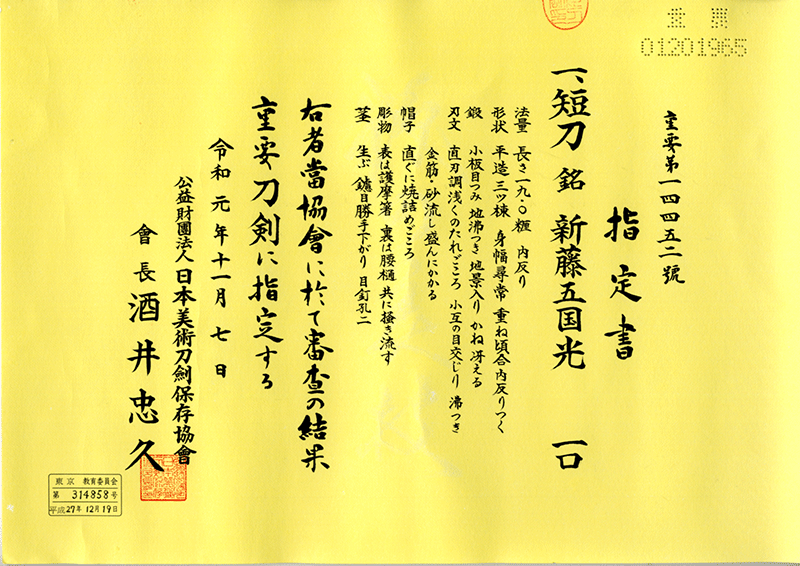 01201965
重要第一四四五二號
指定書
一、短刀 銘 新藤五国光 一口
法量 長さ一九・〇糎 内反り
形状 平造 三ッ棟 身幅尋常 重ね頃合 内反りつく
鍛 小板目つみ 地沸つき 地景入り かね冴える
刃文 直刃調浅くのたれごころ 小互の目交じり 沸つき
金筋・砂流し盛んにかかる
帽子 直ぐに焼詰めごころ
彫物 表は護摩箸 裏は腰樋 共に掻き流す
茎 生ぶ 鑢目勝手下がり 目釘孔二
右者當協會に於て審査の結果
重要刀剣に指定する
令和元年十一月七日
公益財團法人日本美術刀劍保存協會
會長 酒井忠久
東京 教育委員会
第 314858 号
平成27年12月19日